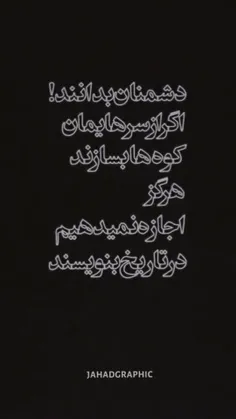 دشمنان بدانند!
اگر از سرهایمان
کوه‌ها بسازند
هرگز
اجازه نمیدهیم
در تاریخ بنویسند
JAHADGRAPHIC